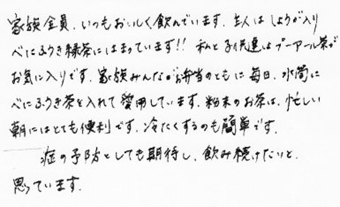 家族全員、いつもおいしく飲んでいます。主人はしょうが入り
べにふうき緑茶にはまっています!! 私と子供達はプーアール茶が
お気に入りです。家族みんながお弁当のともに毎日、水筒に
べにふうき茶を入れて愛用しています。粉末のお茶は、忙しい
朝にはとても便利です。冷たくするのも簡単です。
症の予防としても期待し、飲み続けたいと
思っています。